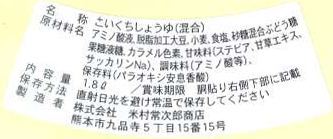 名　称 こいくちしょうゆ(混合)
原材料名 アミノ酸液、脱脂加工大豆、小麦、食塩、砂糖混合ぶどう糖
果糖液糖、カラメル色素、甘味料(ステビア、甘草エキス、
サッカリンNa)、調味料(アミノ酸等)、
保存料(パラオキシ安息香酸)
内容量 1.8ℓ ／賞味期限 胴貼り右側下部に記載
保存方法 直射日光を避け常温で保存してください
製造者 株式会社 米村常次郎商店
熊本市九品寺5丁目15番15号